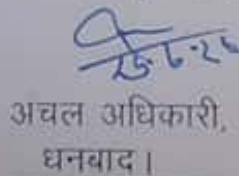 25.6.26
अचल अधिकारी,
धनबाद।